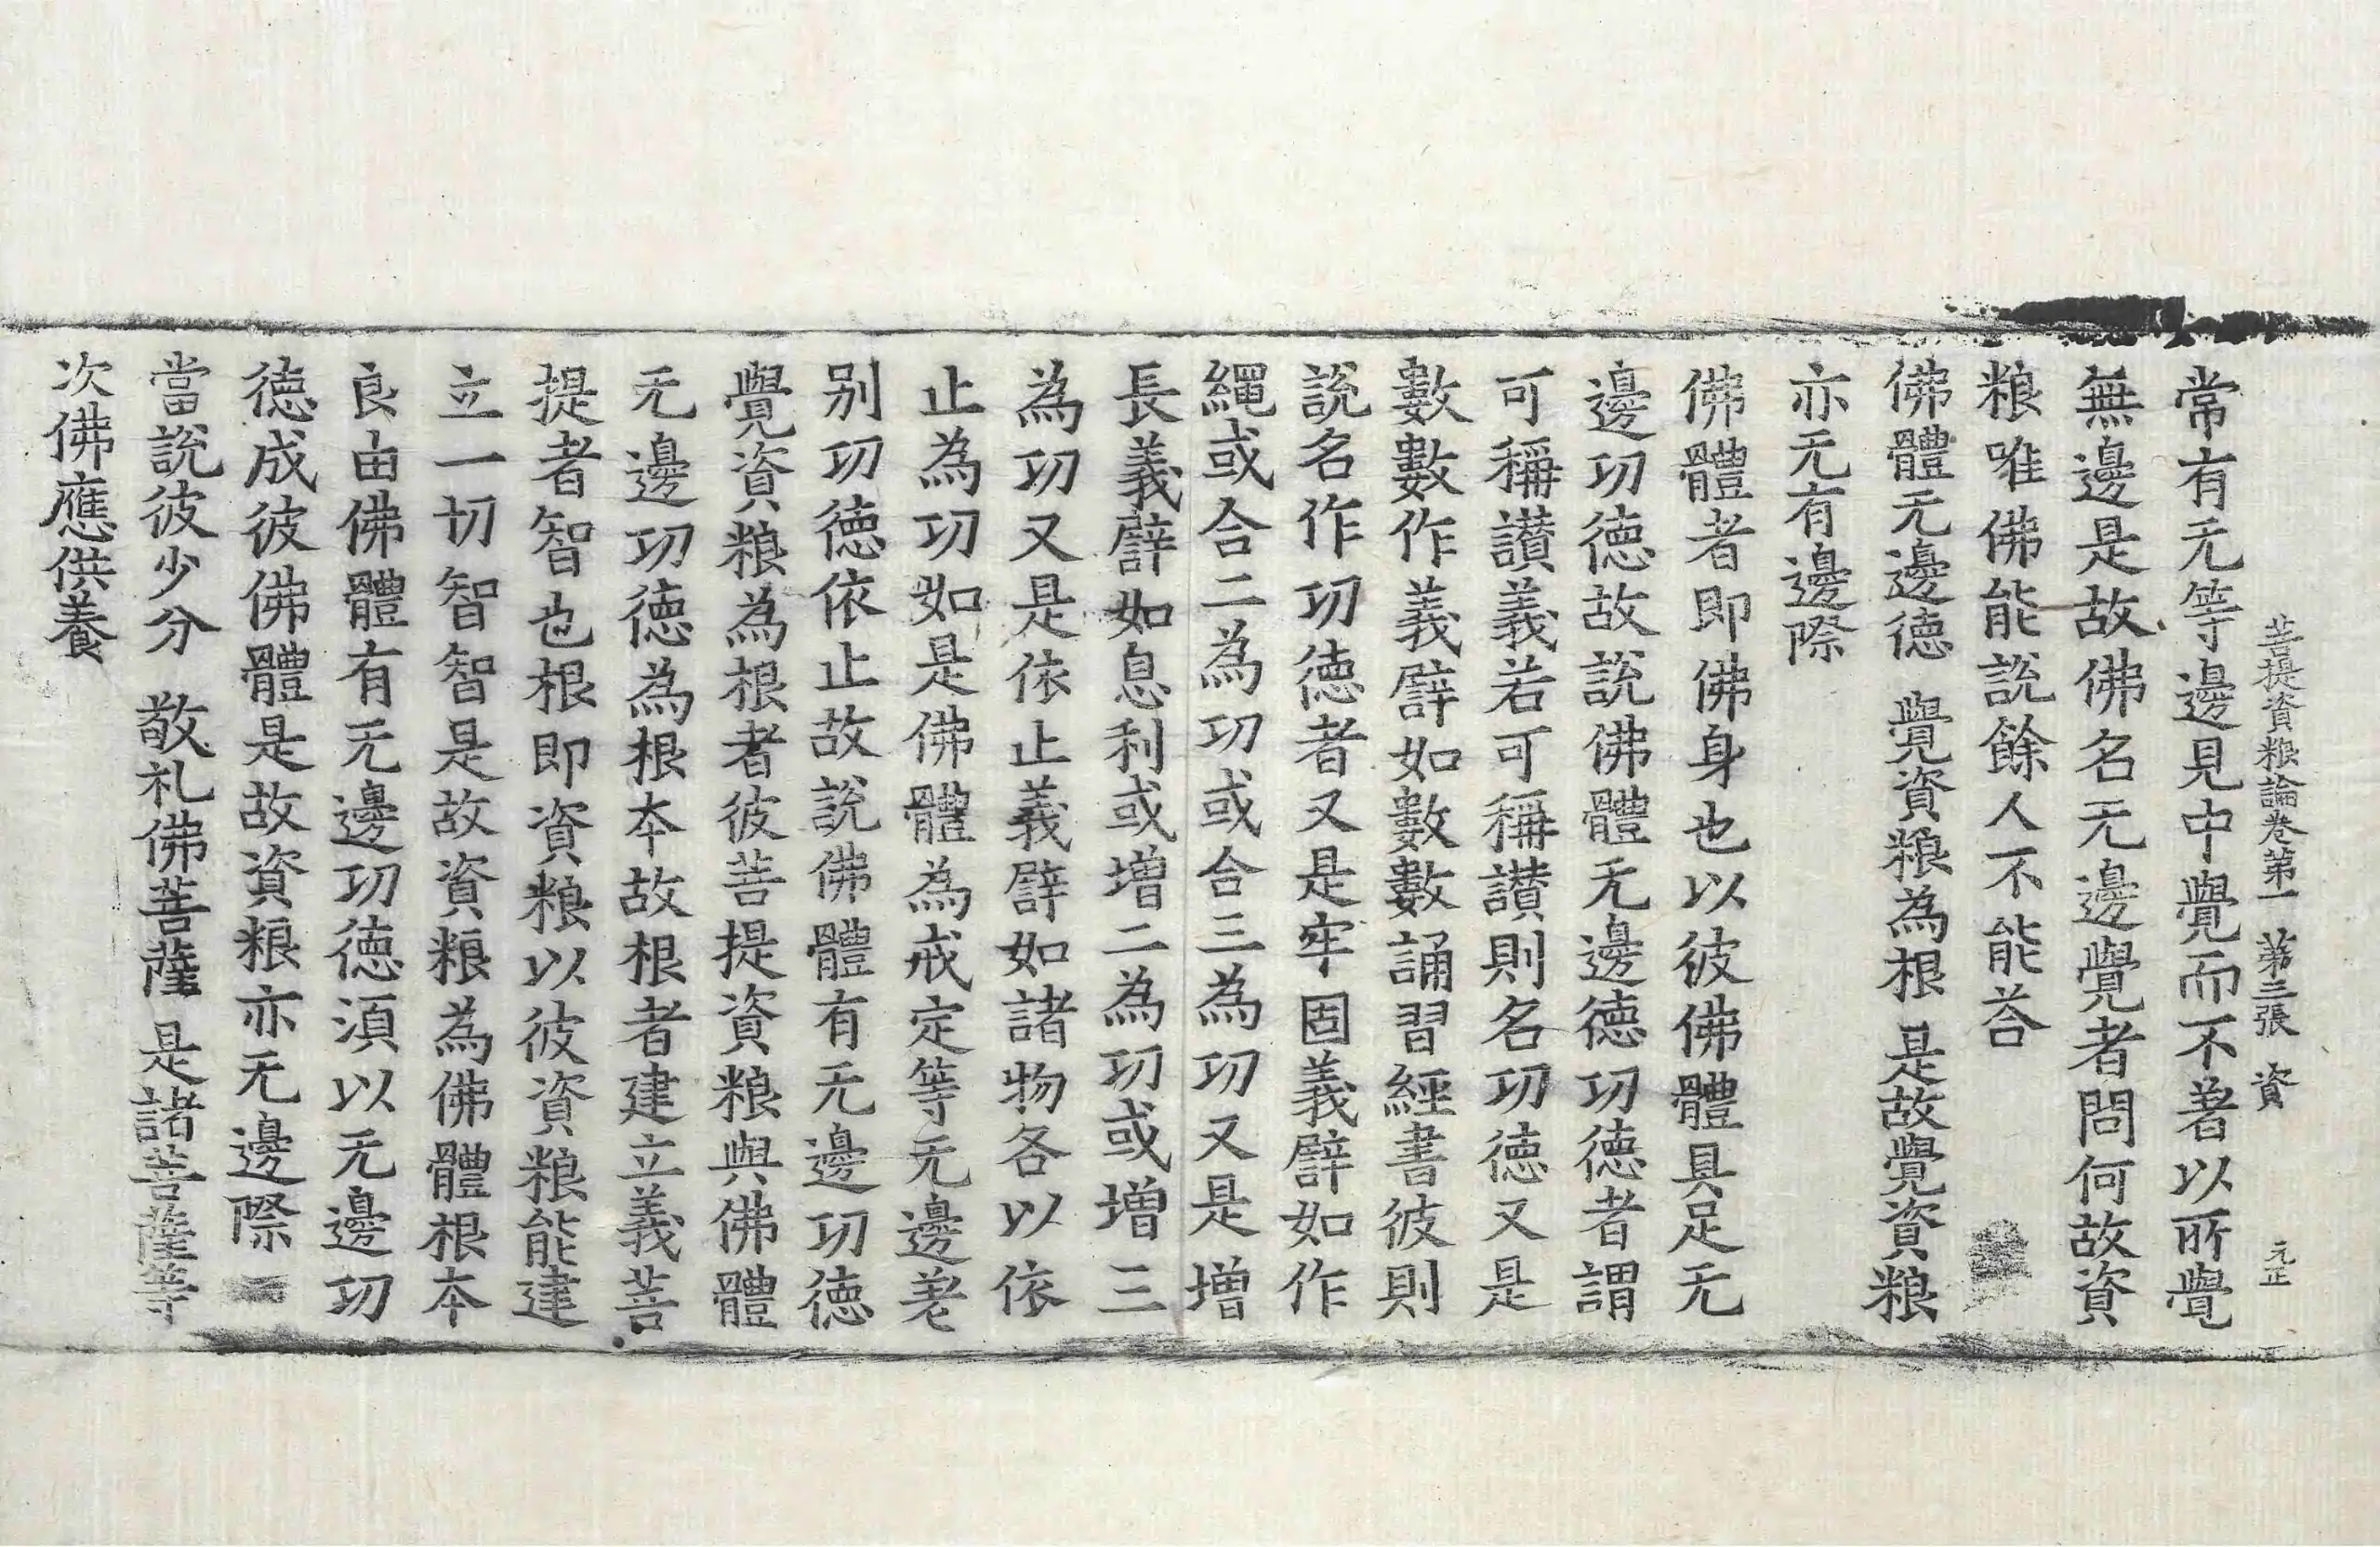 菩提資粮論卷第一 第三張 資 元正
常有无等邊見中覺而不著以所覺
無邊是故佛名无邊覺者問何故資
粮唯佛能說餘人不能荅
佛體无邊德 覺資粮為根 是故覺資粮
亦无有邊際
佛體者即佛身也以彼佛體具足无
邊功德故說佛體无邊德功德者謂
可稱讃義若可稱讃則名功德又是
數數作義譬如數數誦習經書彼則
說名作功德者又是牢固義譬如作
繩或合二為功或合三為功又是增
長義譬如息利或增二為功或增三
為功又是依止義譬如諸物各以依
止為功如是佛體為戒定等无邊差
别功德依止故說佛體有无邊功德
覺資粮為根者彼菩提資粮與佛體
无邊功德為根本故根者建立義菩
提者智也根即資粮以彼資粮能建
立一切智智是故資粮為佛體根本
良由佛體有无邊功德湏以无邊功
德成彼佛體是故資粮亦无邊際
當說彼少分 敬礼佛菩薩 是諸菩薩等
次佛應供養